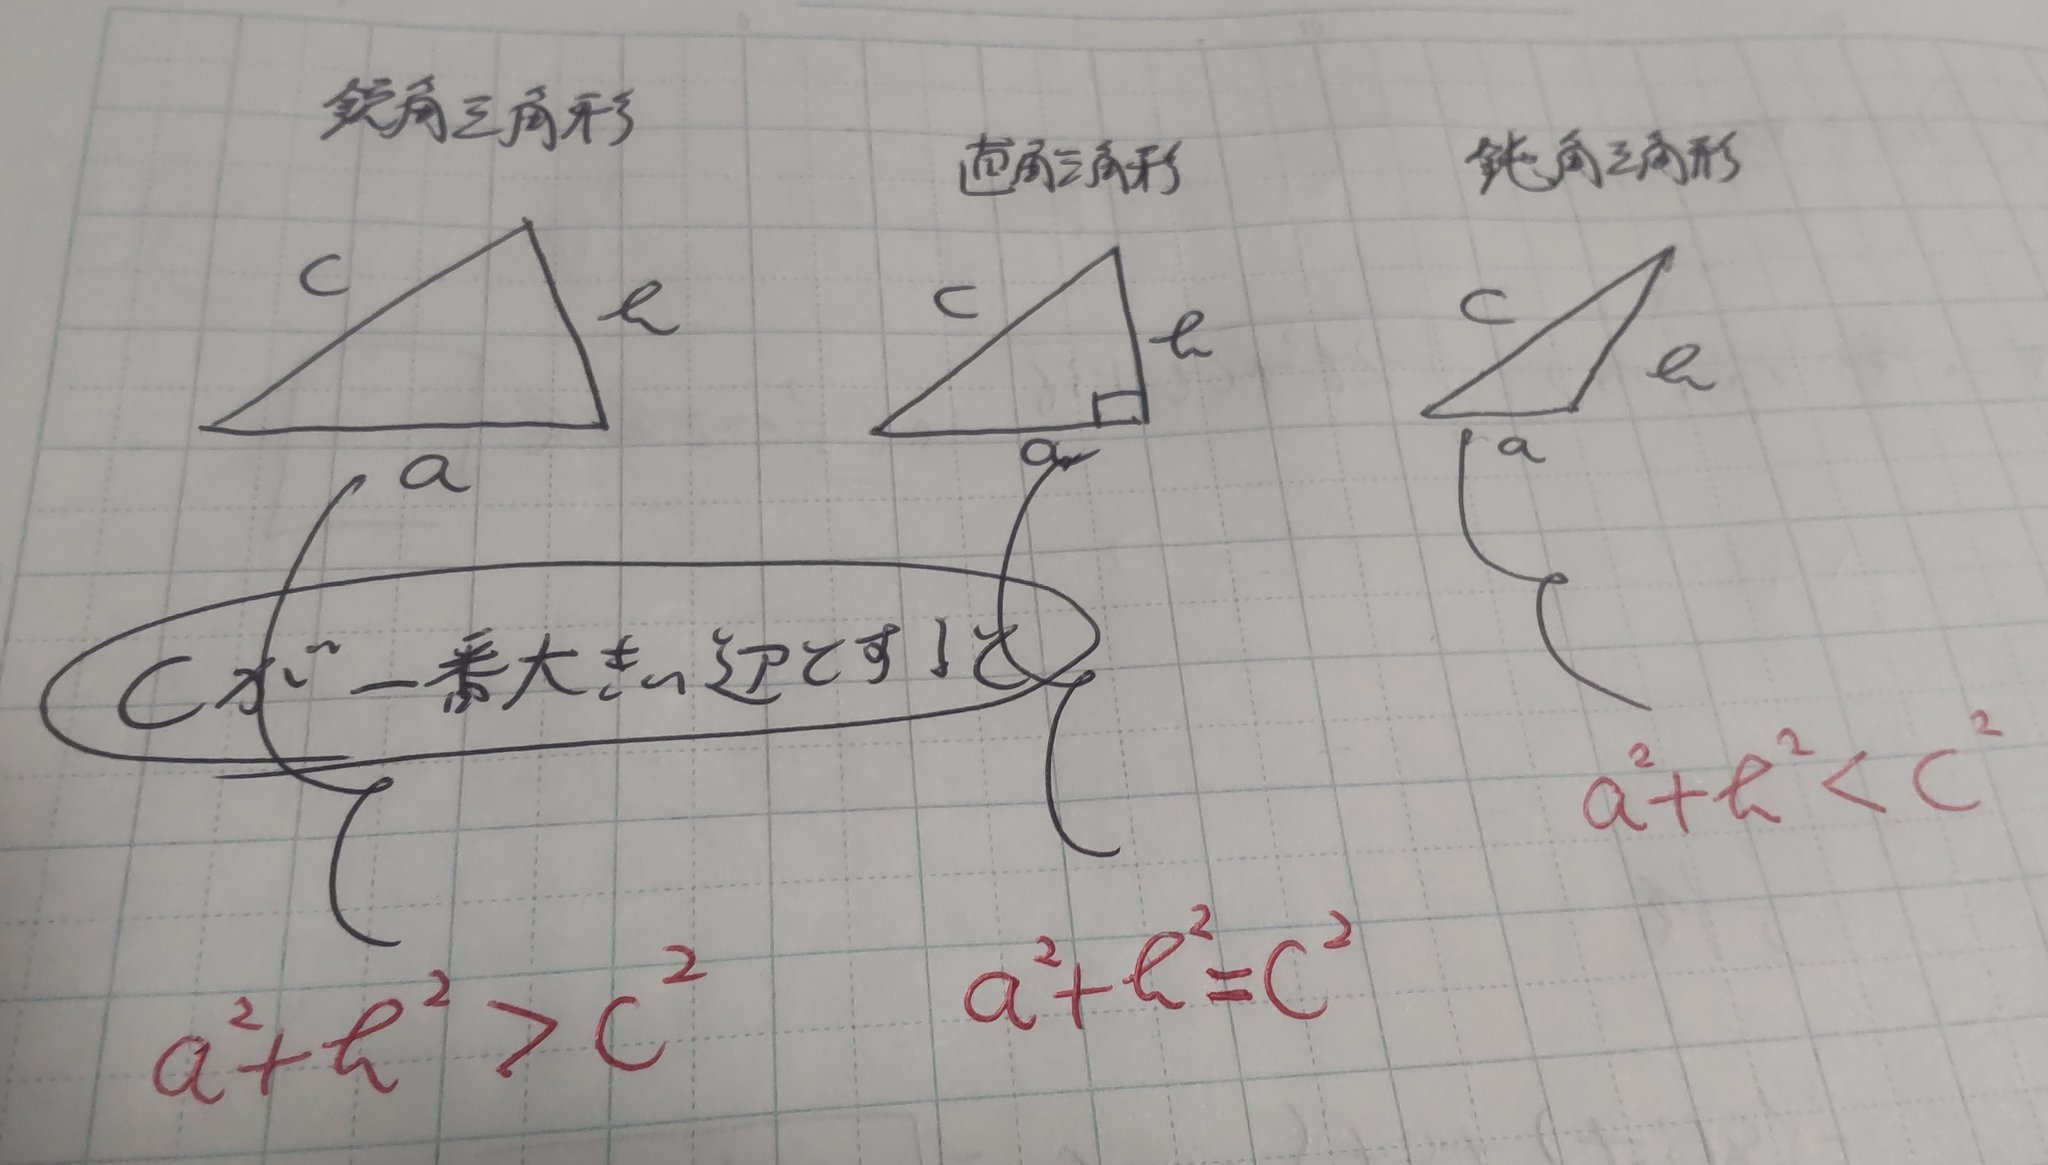 鋭角三角形
直角三角形
鈍角三角形
c
h
a
c
h
a
c
h
a
Cが一番大きい辺とすると
a²+h²>c²
a²+h²=c²
a²+h²<c²